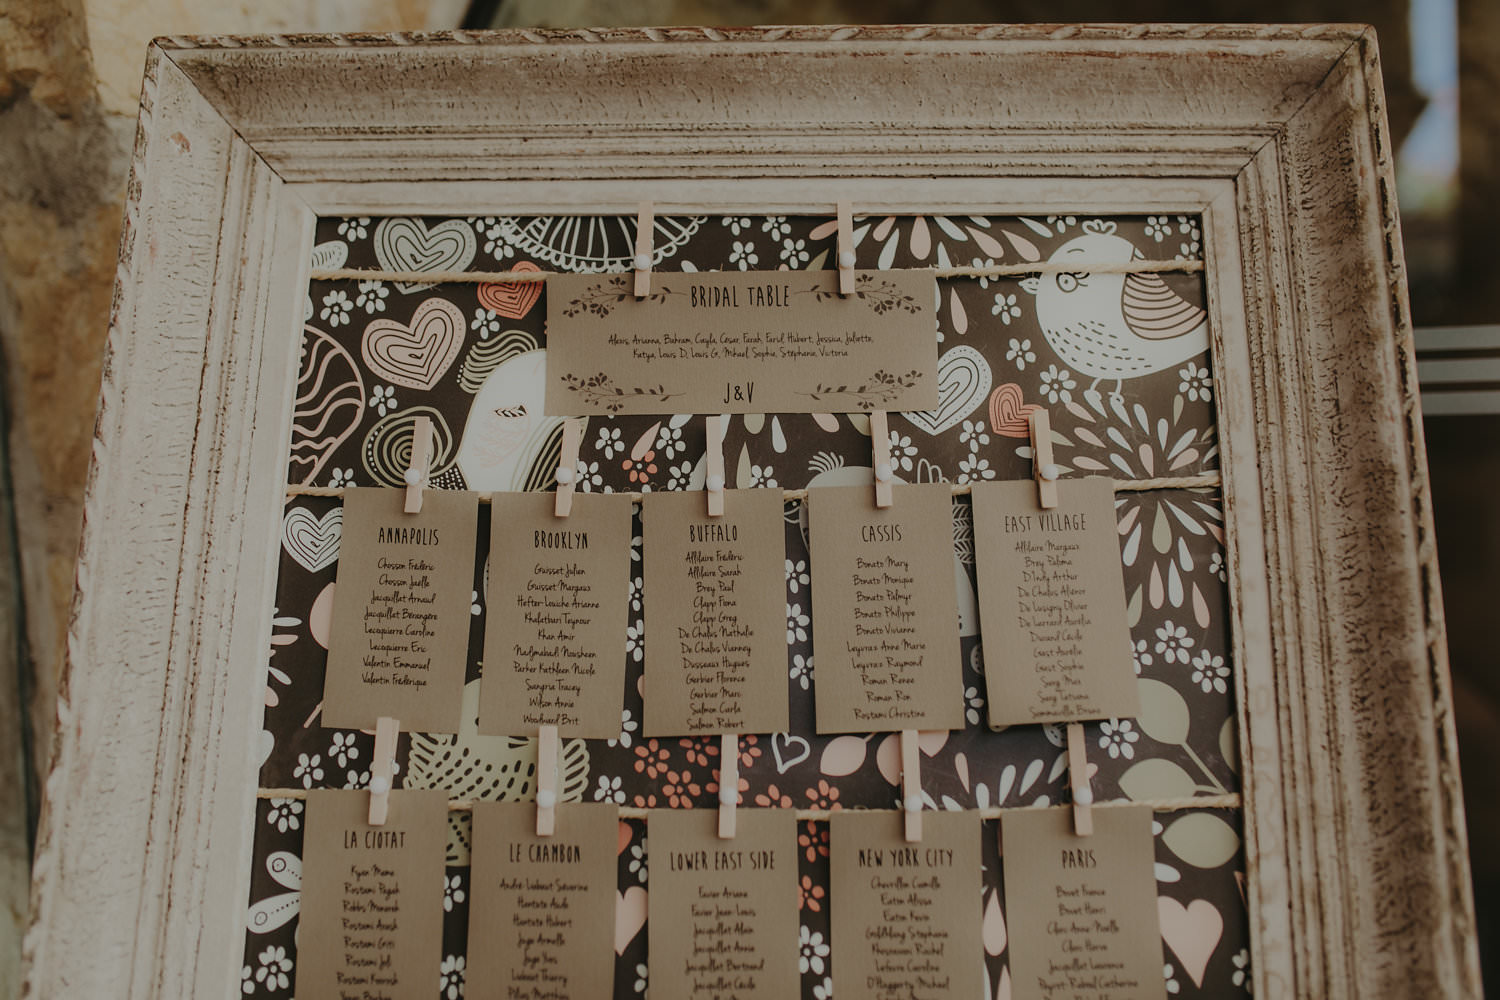 BRIDAL TABLE
Alexis, Arianna, Bahram, Cayla, César, Farah, Farid, Hubert, Jessica, Juliette,
Katya, Louis D, Louis G, Mikael, Sophie, Stéphanie, Victoria
J & V
ANNAPOLIS
Chosson Frédéric
Chosson Joëlle
Jacquillat Arnaud
Jacquillat Bérangère
Lecoquierre Caroline
Lecoquierre Eric
Valentin Emmanuel
Valentin Frédérique
BROOKLYN
Guisset Julien
Guisset Margaux
Hofter-Louiche Arianne
Khalatbari Teynour
Khan Amir
Nadjmabadi Nousheen
Parker Kathleen Nicole
Sangria Tracey
Wilson Annie
Woodward Brit
BUFFALO
Allilaire Frédéric
Allilaire Sarah
Brey Paul
Clapp Fiona
Clapp Greg
De Chalus Nathalie
De Chalus Vianney
Dusseaux Hugues
Gerbier Florence
Gerbier Marc
Salmon Carla
Salmon Robert
CASSIS
Bonato Mary
Bonato Monique
Bonato Palmyr
Bonato Philippe
Bonato Vivianne
Leyvraz Anne Marie
Leyvraz Raymond
Roman Renee
Roman Ron
Rostami Christine
EAST VILLAGE
Allilaire Margaux
Brey Paloma
D'Indy Arthur
De Chalus Aliénor
De Lusigny Olivier
De Larrard Aurélia
Durand Cécile
Gest Aurélin
Gest Sophie
Sarg Max
Sarg Tatiana
Sommaville Bruno
LA CIOTAT
Kyan Mame
Rostami Papak
Robbs Monereh
Rostami Arash
Rostami Giti
Rostami Joli
Rostami Kourosh
LE CHAMBON
André-Liebaut Séverine
Hentute Aude
Hentute Hubert
Joye Armelle
Joye Yves
Liebaut Thierry
Pillas Matthieu
LOWER EAST SIDE
Favier Ariane
Favier Jean-Louis
Jacquillat Alain
Jacquillat Annie
Jacquillat Bertrand
Jacquillat Cécile
NEW YORK CITY
Chevrillon Camille
Eaton Alissa
Eaton Kevin
Goldberg Stephanie
Khosnevani Rachel
Lefevre Caroline
O'Haggerty Michael
PARIS
Bovet France
Bovet Henri
Clerc Anne-Noëlle
Clerc Hervé
Jacquillat Laurence
Peyrot-Rabaud Catherine